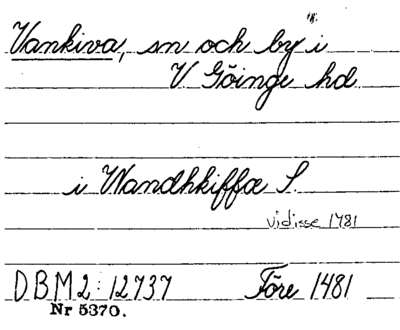 Vankiva, sn och by i
V Göinge hd
i Wandhkiffæ S.
vidisse 1481
DBM2: 12737 Före 1481
Nr 5370.